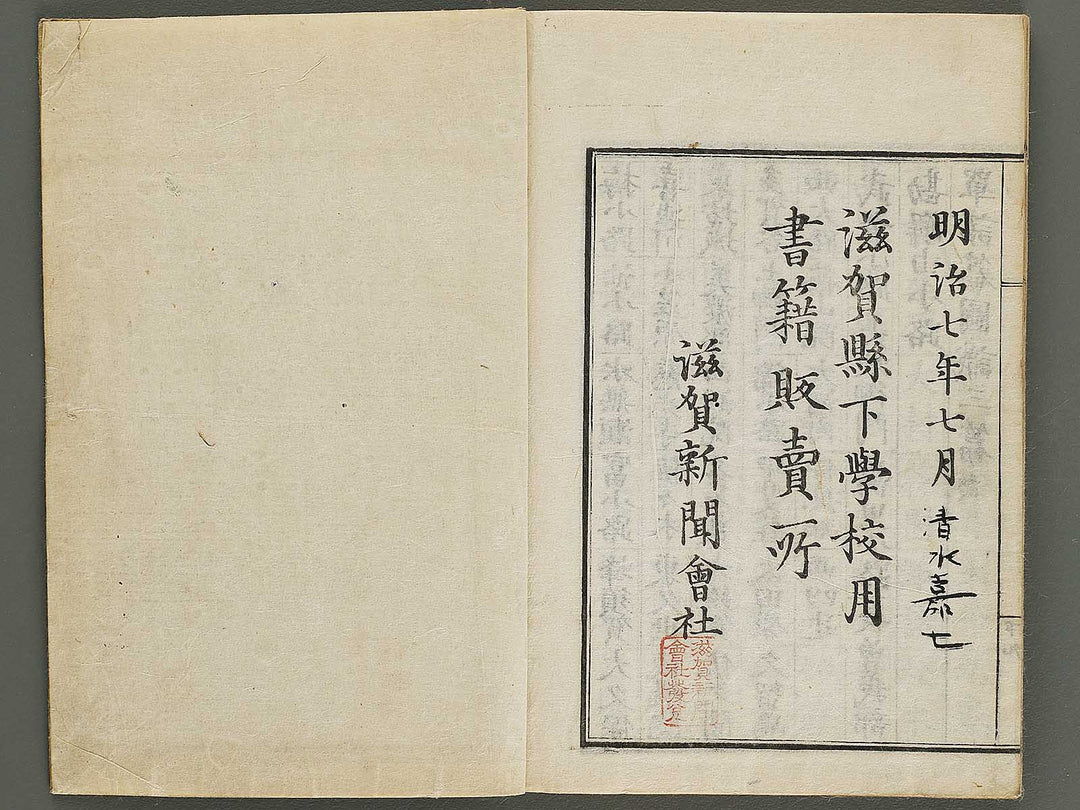 明治七年七月 清水嘉七
滋賀縣下學校用
書籍販賣所
滋賀新聞會社
滋賀新聞
會社